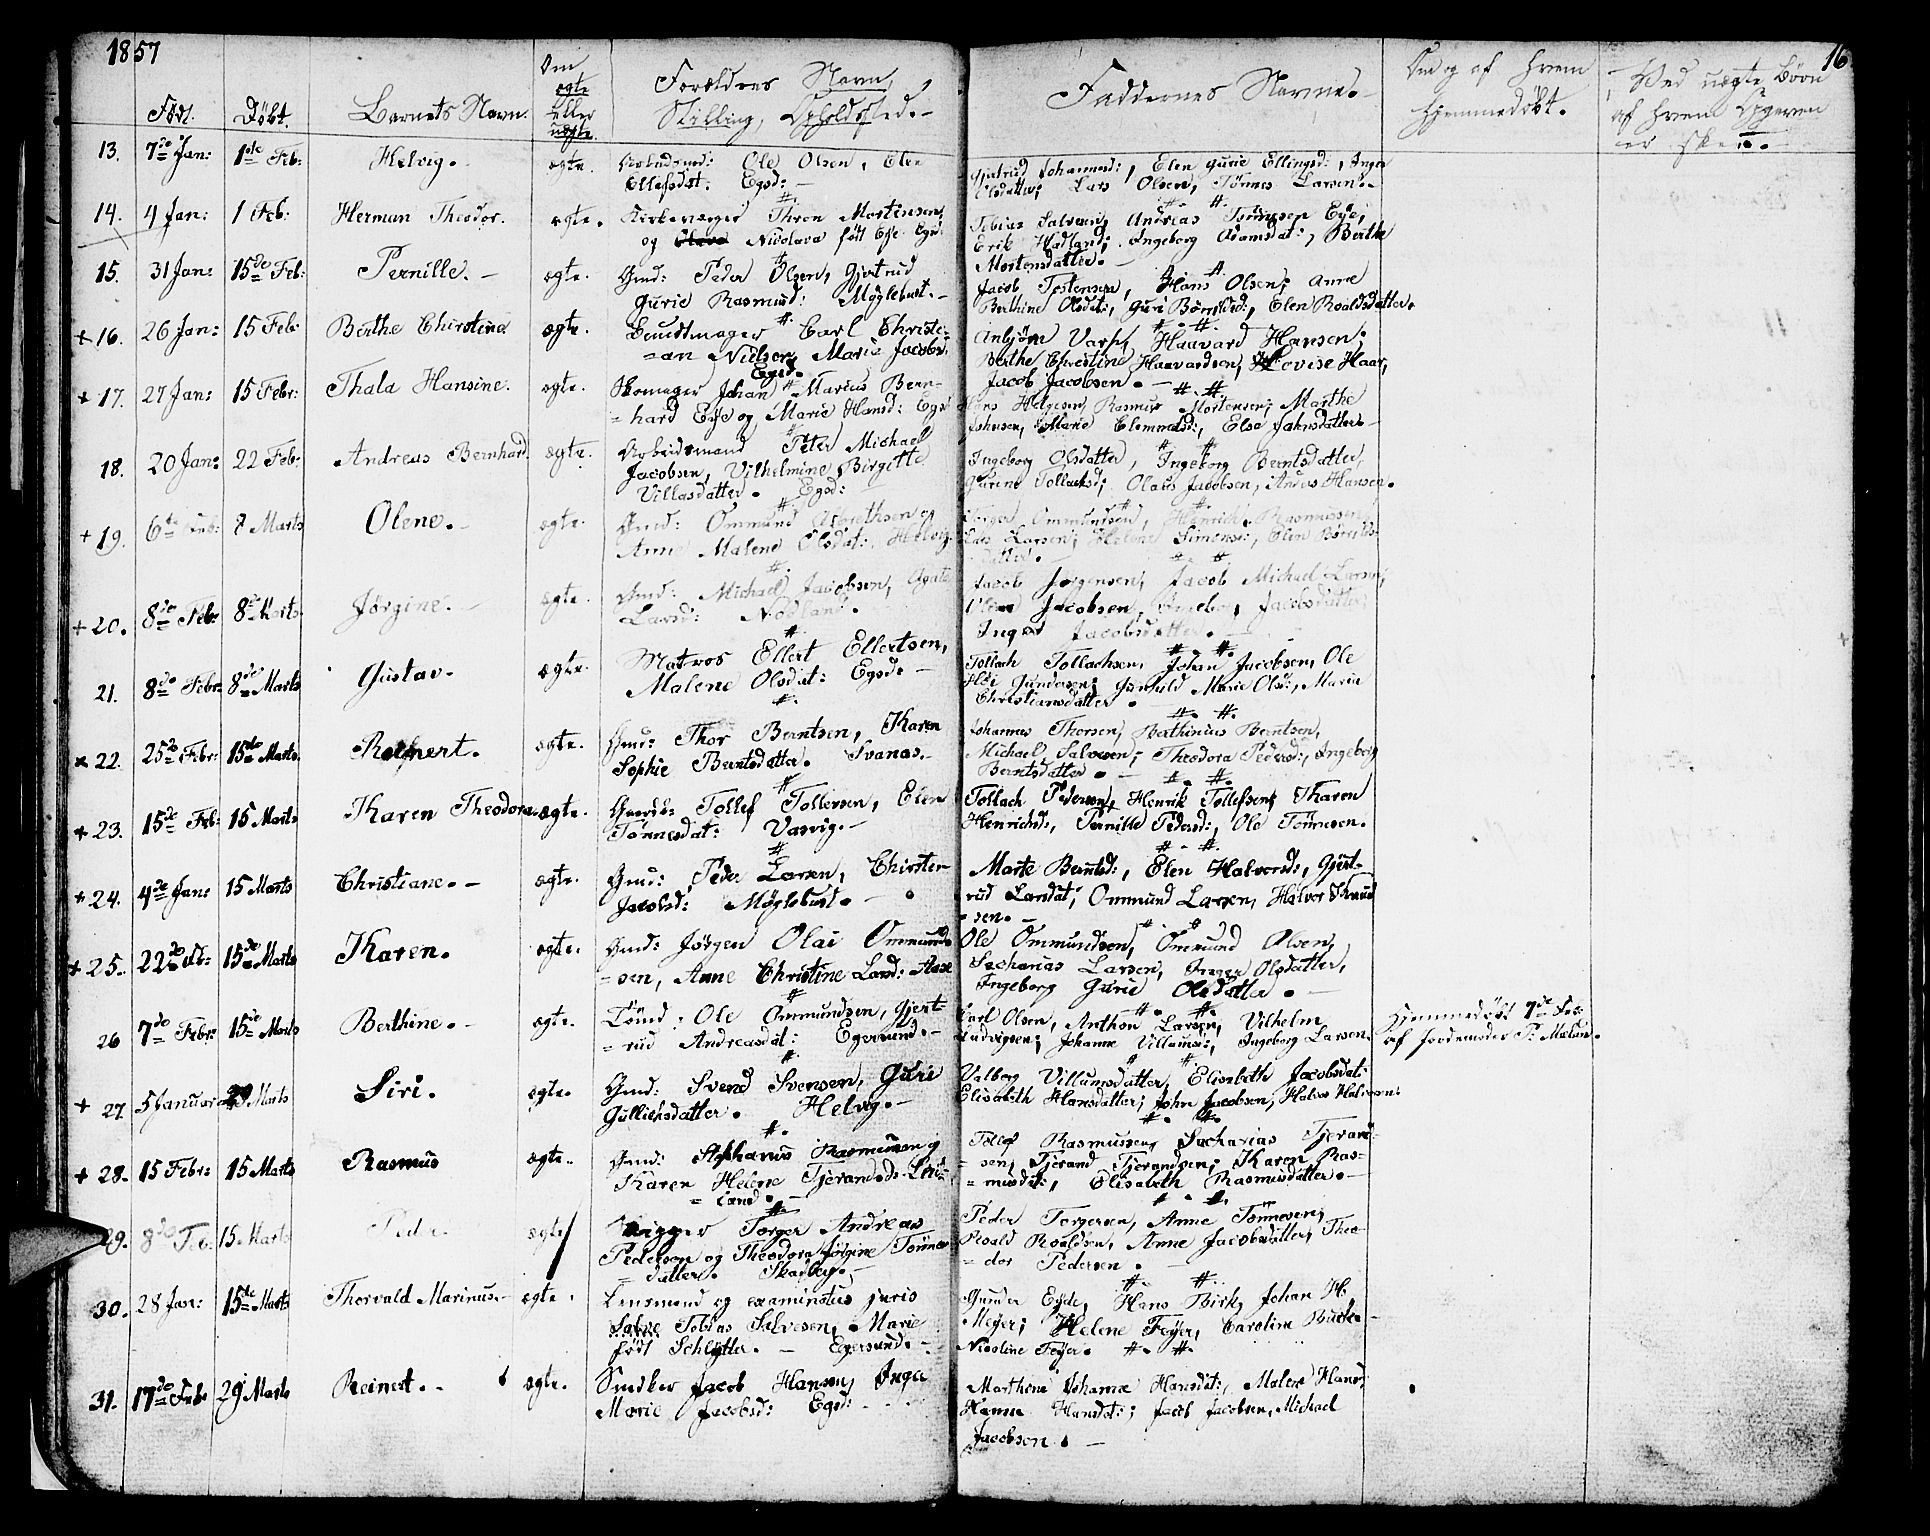 1857
16
Født. Døbt. Barnets Navn. Om ægte eller uægte. Forældres Navn, Stilling, Opholdsted.- Faddernes Navne.- Om og af hvem hjemmedøbt. Ved uægte Børn af hvem Opgaven er skeet.-
13. 7de Jan: 1ste Feb: Helvig. ægte. Arbeidsmd: Ole Olsen, Elen
Ellefsdat: Egsd:-
Gjertrud Johannesd:, Elen Gurie Ellingsd:, Inger
Olsdatter; Lars Olsen, Tønnes Larsen.-
14. 4 Jan: 1 Feb: Herman Theodor. ægte. Kirkeværger Thron Mortensen,
og Nicolava født Eje Egsd:
Tobias Salvesen, Andreas Tønnesen Eje,
Erik Hadland; Ingeborg Adamsdat:, Berthe
Mortensdatter.-
15. 31 Jan: 15de Feb: Pernille.- ægte. Gmd: Peder Olsen, Gjertrud
Gurie Rasmusd: Møglebust.-
Jacob Tostensen, Hans Olsen; Anne
Berthine Olsdat:, Guri Børrildsd:, Elen Roaldsdatter.
+ 16. 26 Jan: 15 Feb: Berthe Christine ægte. Bundtmager Carl Christi-
=an Nielsen, Marie Jacobsd:
Egsd.
Anbjørn Varp, Haavard Hansen;
Berthe Christine Haavardsen, Lovise Haar,
Jacob Jacobsen.-
+ 17. 27 Jan: 15 Febr: Thala Hansine. ægte. Skomager Johan Marius Bern-
=hard Eeje og Marie Hansd: Egsd
Hans Helgesen, Rasmus Mortensen; Marthe
Johnsen, Marie Clemmetsd:, Else Jahnsdatter.-
18. 20 Jan: 22 Feb: Andreas Bernhard. ægte. Arbeidsmand Peter Michael
Jacobsen, Vilhelmine Birgitte
Villasdatter. Egsd:-
Ingeborg Olsdatter, Ingeborg Berntsdatter,
Gurine Tollachsd; Olaus Jacobsen, Andreas Hansen.
+ 19. 6te Feb: 8 Marts Olene. ægte. Gmd: Ommund Asbjørnsen og
Anne Malene Olsdat: Helvig
Torger Ommundsen, Henrich Rasmussen,
Lars Larsen; Helene Simonsd:, Elen Børrilds-
datter.
+ 20. 8de Feb: 8de Marts Jørgine.- ægte. Gmd: Michael Jacobsen, Agate
Larsd: Nodland.
Jacob Jørgensen, Jacob Michael Larsen,
Jacobsen, Ingeborg Jacobsdatter,
Inger Jacobsdatter.-
21. 8de Febr: 8de Marts Gustav. ægte. Matros Ellert Ellertsen,
Malene Olsdat: Egsd:-
Tollach Tollachsen, Johan Jacobsen, Ole
Hoi Gundersen; Gunuld Marie Olsd:, Marie
Christiansdatter.
x 22. 25de Febr: 15de Marts. Reinert. ægte. Gmd: Thor Berntsen, Karen
Sophie Berntsdatter. Svanæs.-
Johannes Thorsen, Berthinius Berntsen,
Michael Salvesen; Theodora Pedersd:, Ingeborg
Berntsdatter.-
+ 23. 15de Feb: 15 Marts Karen Theodora. ægte. Tollef Tollefsen, Elen
Tønnesdat: Varvig.-
Tollach Pedersen, Henrik Tollefsen; Tharen
Henrichsd:, Pernille Pedersd:, Ole Tønnesen.
+ 24. 4de Jan: 15 Marts Christiane.- ægte. Gmd: Peder Larsen, Christen-
Jacobsd: Møglebust.-
Marte Berntsd:, Elen Halvorsd:, Gjert-
rud Larsdat; Ommund Larsen, Halvor Knud
=sen.-
+ 25. 22de Feb: 15de Marts Karen. ægte. Gmd: Jørgen Olai Ommund-
=sen, Anne Christine Larsd: Aase
Ole Ommundsen, Ommund Olsen,
Sacharias Larsen, Inger Olsdatter,
Ingeborg Gurie Olsdatter.-
26 7de Febr: 15de Marts Berthine.- ægte. Tømmd: Ole Ommundsen, Gjert-
=rud Andreasdat: Egersund.-
Carl Olsen, Anthon Larsen, Vilhelm
Ludvigsen; Johanne Villumsd:, Ingeborg Larsen.
Hjemmedøbt 7de Feb:
af Jordemoder P. Mælan.
+ 27. 5 Januar 29 Marts Siri. ægte. Gmd: Svend Svensen, Guri
Gullichsdatter. Helvig.-
Valborg Villumsdatter, Elisabeth Jacobsdat:
Elisabeth Hansdatter; John Jacobsen, Halvor Halvorsen.
+ 28. 15 Febr: 15 Marts Rasmus ægte. Gmd: Stephanus Rasmussen og
Karen Helene Tjerandsd:
=land.-
Tollef Rasmussen, Sacharias Tjerand-
=sen, Tjerand Tjerandsen; Karen Ras-
=musdat:, Elisabeth Rasmusdatter.-
29. 8de Feb: 15 Marts Peder. ægte Torger Andreas
Pedersen og Theodora Jørgine Tønnes-
=datter. Skadberg.-
Peder Torgersen, Anne Tønnesen;
Roald Roaldsen, Anne Jacobsdatter, Theo-
=dor Pedersen.-
30. 28 Jan: 15de Marts Thorvald Marinus.- ægte. Lensmand og examinatus juris
Salve Tobias Salvesen, Marie
født Schlytter.- Egersund.-
Gunder Eyde, Hans Birk, Johan H.
Meyer; Helene Feyer, Caroline Birk.-
Nicoline Feyer.
31. 17de Feb: 29 Marts Reinert.- ægte. Snedker Jacob Hansen, Inger
Marie Jacobsd: Egsd:
Marthine Johanne Hansdat:, Malene Hansd;
Hanna Hansdat:; Jacob Jacobsen, Michael
Jacobsen.-